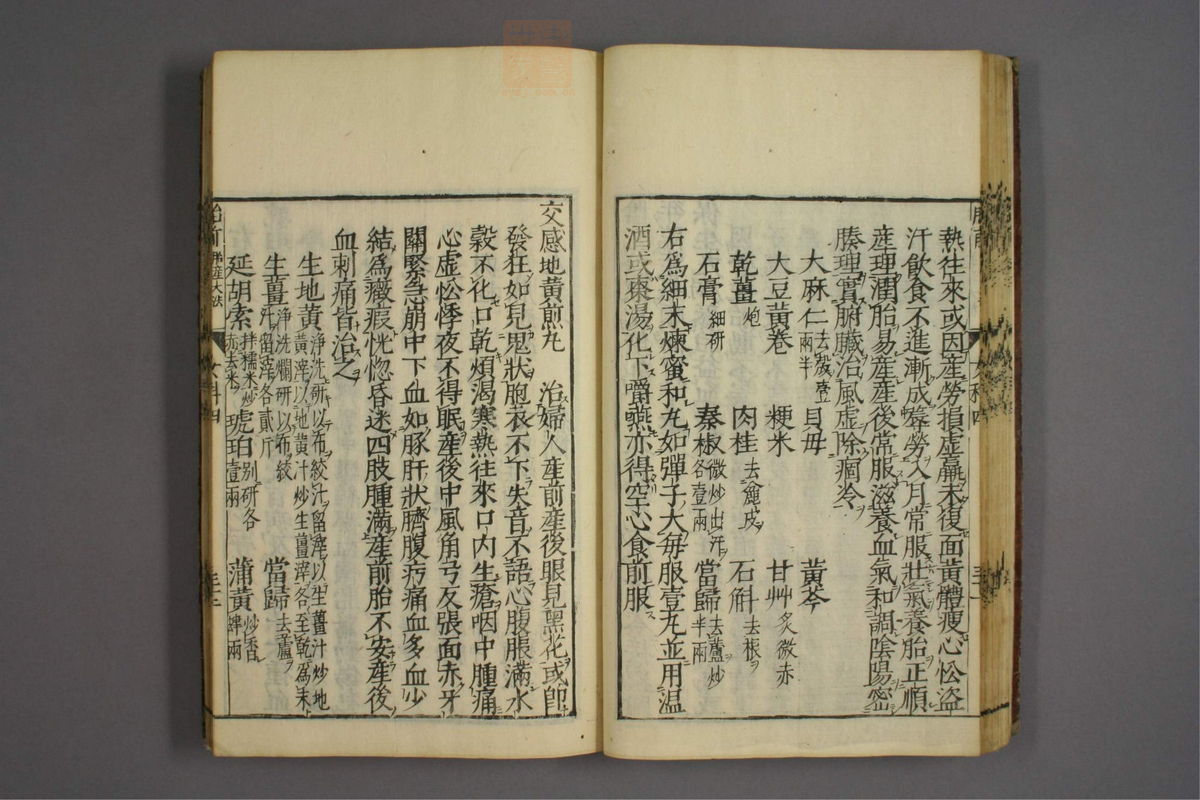 熱往來或因產勞損虛羸未復面黃體瘦心忪盜
汗飲食不進漸成蓐勞入月常服壯氣養胎正順
產理潤胎易產產後常服滋養血氣和調陰陽密
腠理實腑臟治風虛除痼冷
大麻仁去殼壹兩半 貝母 黃芩
大豆黃卷 粳米 甘艸炙微赤
乾薑炮 肉桂去麄皮 石斛去根
石膏細研 秦椒微炒出汗各壹兩 當歸去蘆炒半兩
右爲細末煉蜜和丸如彈子大每服壹丸並用温
酒或棗湯化下嚼嚥亦得空心食前服
交感地黃煎丸 治婦人產前產後眼見黑花或卽
發狂如見鬼狀胞衣不下失音不語心腹脹滿水
穀不化口乾煩渴寒熱往來口内生瘡咽中腫痛
心虛忪悸夜不得眠產後中風角弓反張面赤牙
關緊急崩中下血如豚肝狀臍腹㽲痛血多血少
結爲癥瘕恍惚昏迷四肢腫滿產前胎不安產後
血刺痛皆治之
生地黃淨洗研以布絞汁留滓以生薑汁炒地黃滓以地黄汁炒生薑滓各至乾爲末
生薑淨洗爛研以布絞汁留滓各貳斤 當歸去蘆
延胡索拌糯米炒赤去米 琥珀別研各壹兩 蒲黃炒香肆兩